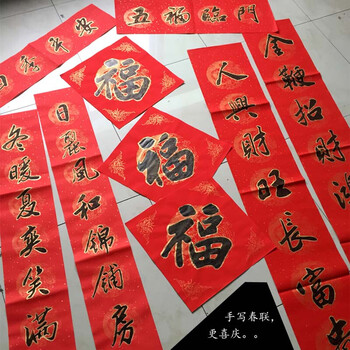 五福臨門
福
福
福
金鞭招財
人興財旺長富
日風和錦鋪房
冬暖夏爽笑满
手写春联，
更喜庆。。